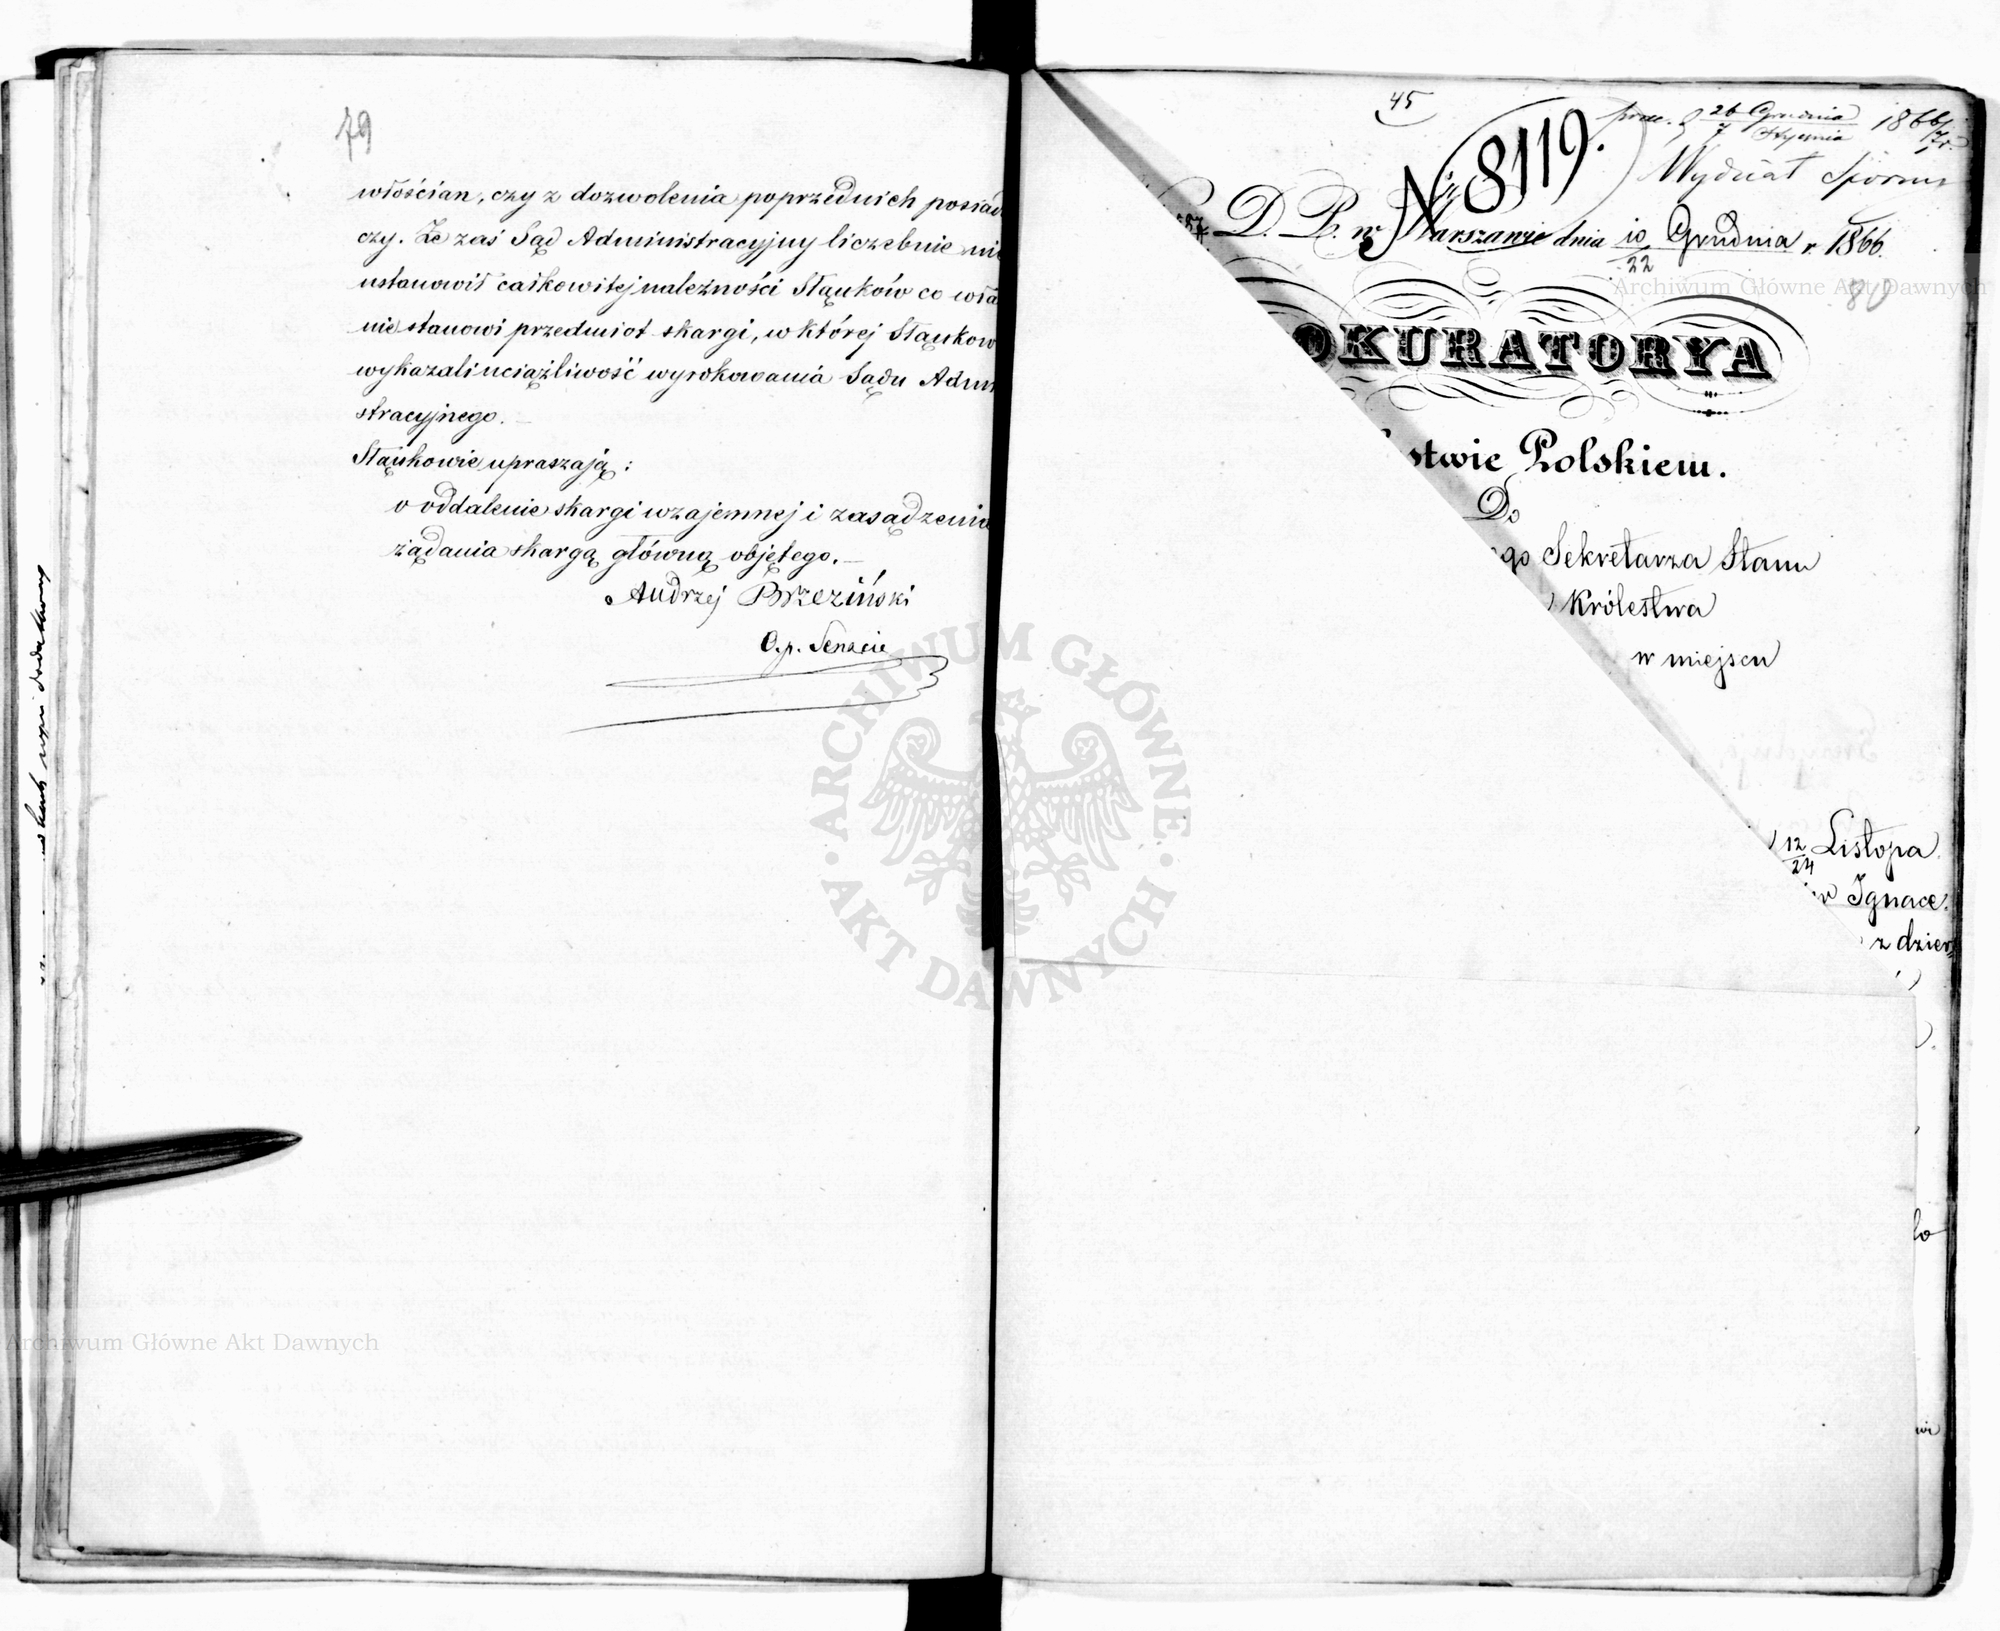 79
włościan, czy z dozwolenia poprzednich posiad
czy. Że zaś Sąd Administracyjny liczebnie nie
ustanowił całkowitej należności Stąuków co wła
nie stanowi przedmiot skargi, w której Stąukow
wykazali uciążliwość wyrokowania Sądu Admi
stracyjnego.
Stąukowie upraszają:
o oddalenie skargi wzajemnej i zasądzenie
żądania skargą główną objętego.
Andrzej Brzeziński
O.p. Senacie
45
prez. 26 Grudnia / 7 Stycznia 1866/7 r.
N 8119.
Wydział Sporny
D. P. w Warszawie dnia 10/22 Grudnia r. 1866.
80
OKURATORYA
stwie Polskiem.
Do
go Sekretarza Stanu
Królestwa
w miejscu
12/24 Listopa
w Ignace
z dzier
lo
wi
ARCHIWUM GŁÓWNE AKT DAWNYCH
Archiwum Główne Akt Dawnych
Archiwum Główne Akt Dawnych